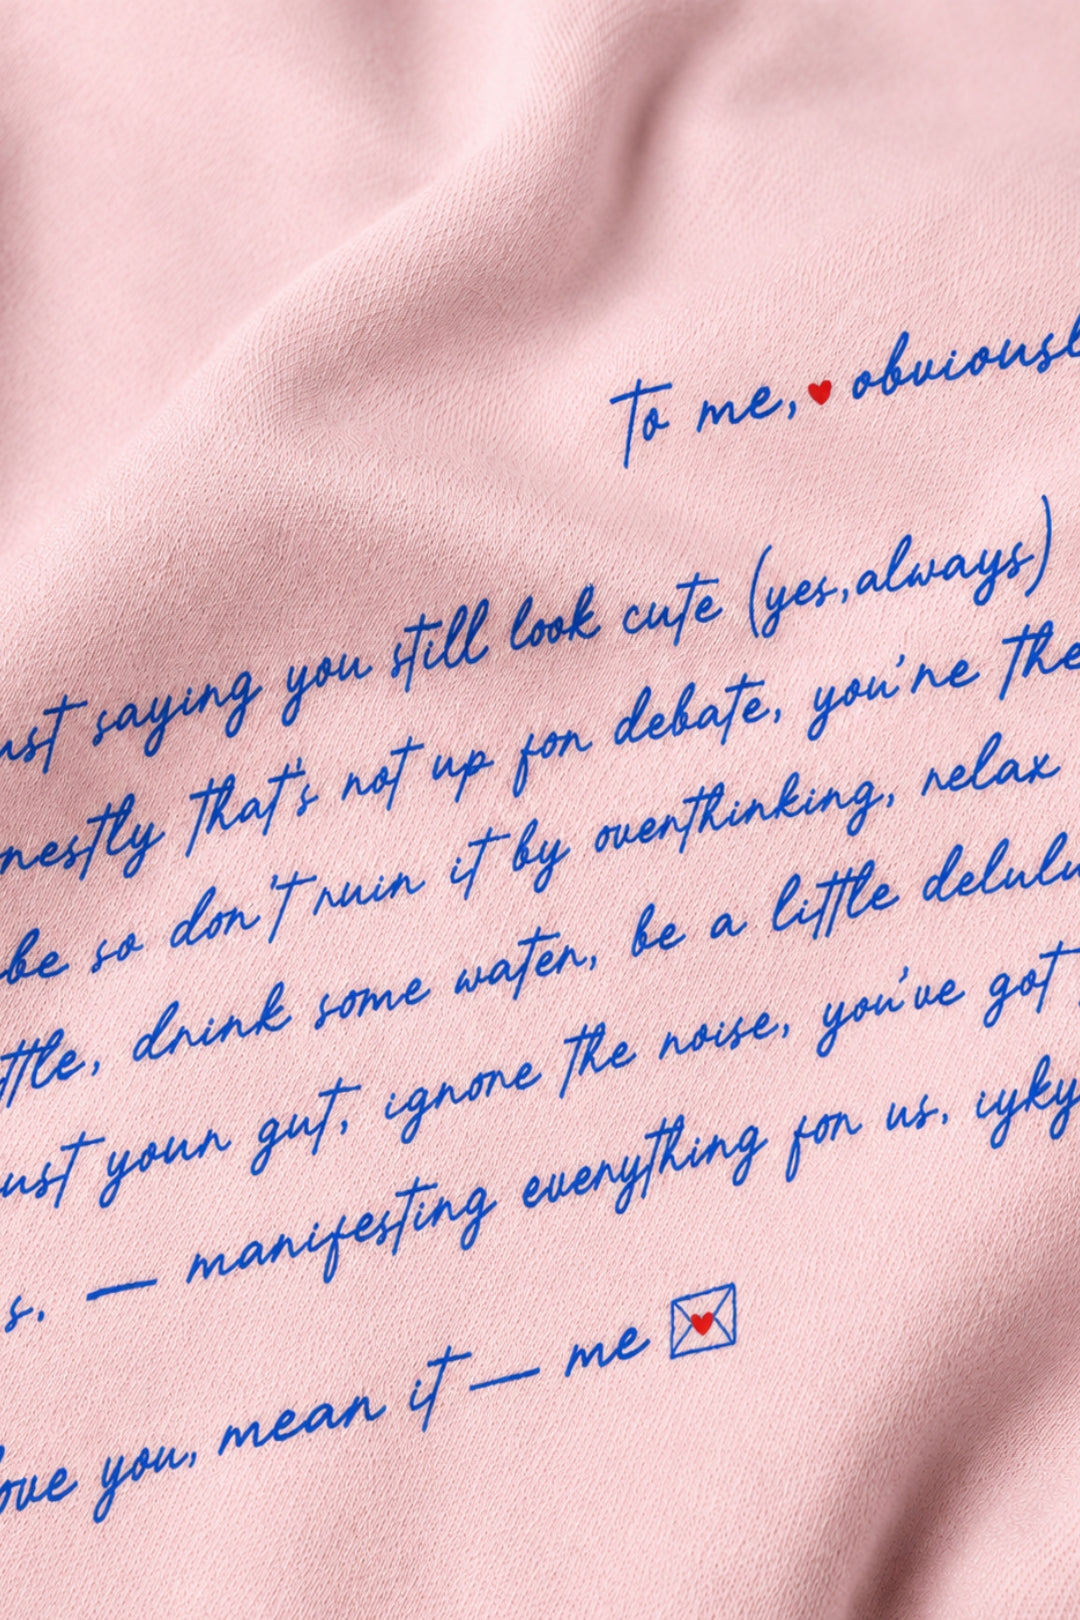 To me, ♥ obviousl
ust saying you still look cute (yes, always)
nestly that's not up for debate, you're the
be so don't ruin it by overthinking, relax
ttle, drink some water, be a little delulu
ust your gut, ignore the noise, you've got
s. — manifesting everything for us, iyky
ove you, mean it — me